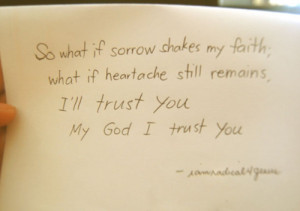 So what if sorrow shakes my faith,
what if heartache still remains,
I'll trust you
My God I trust you